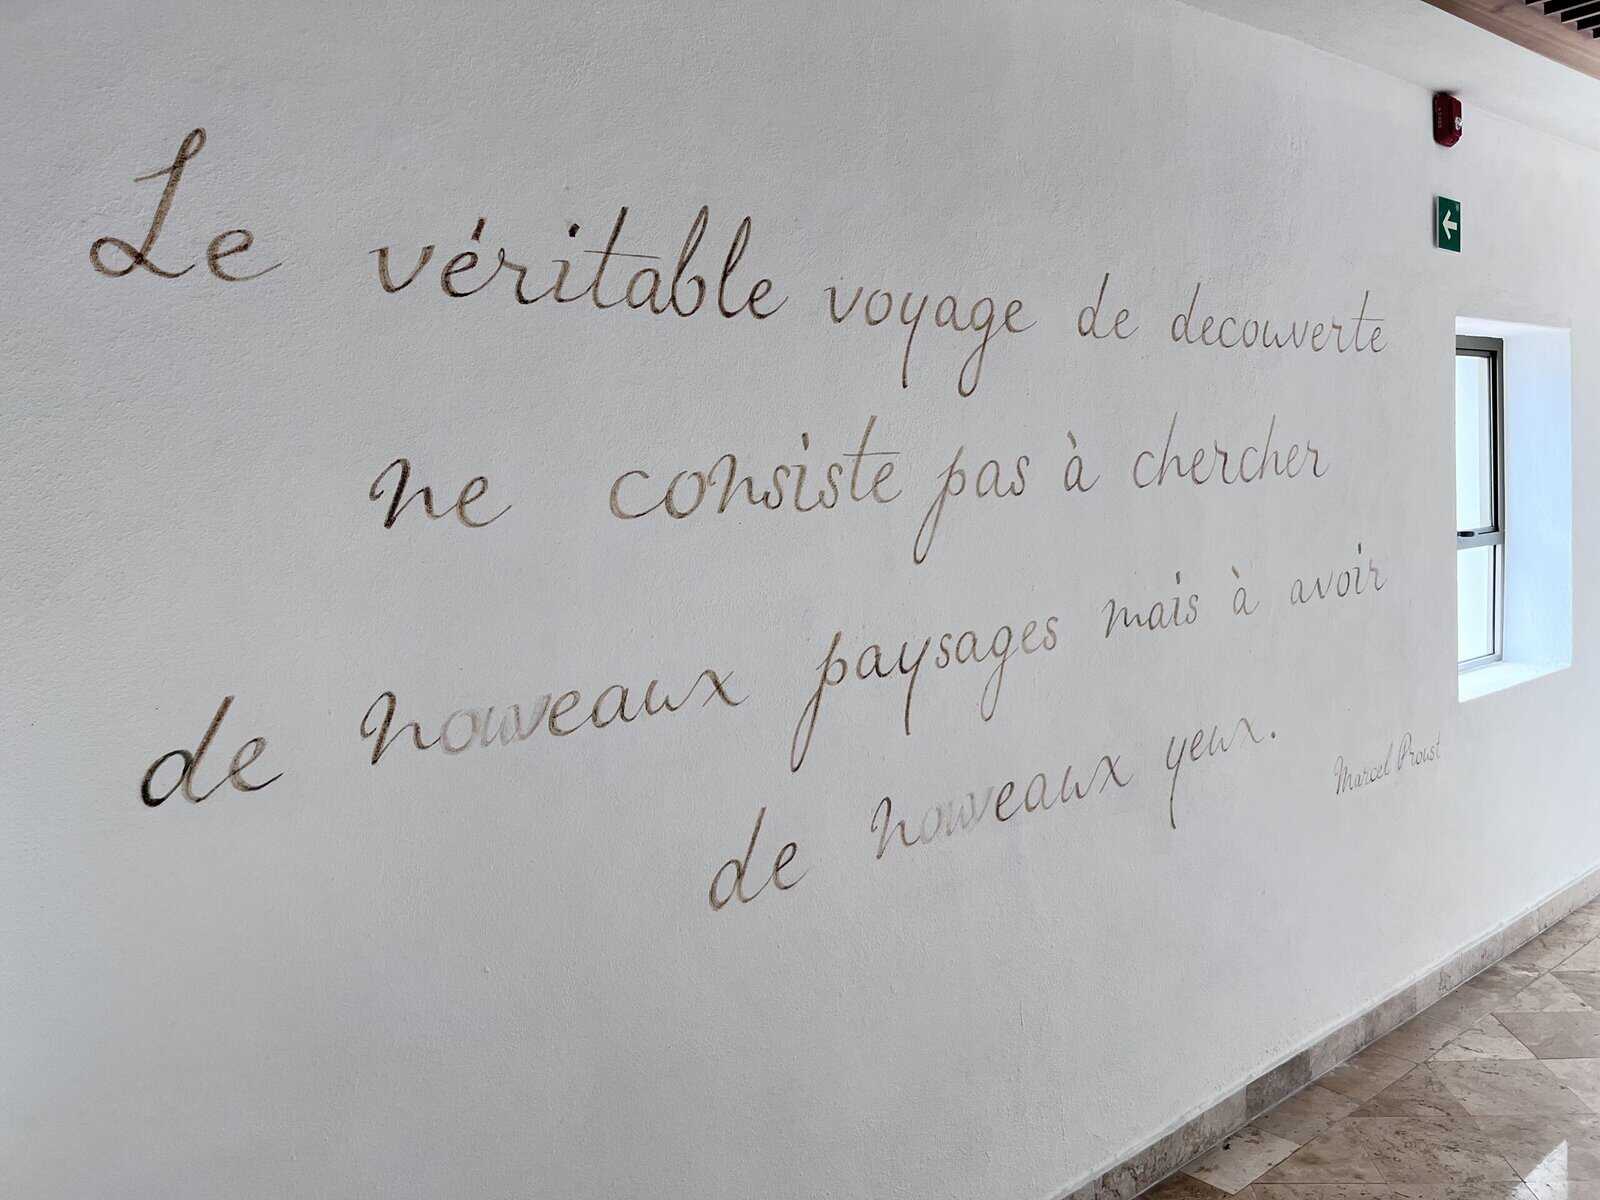 Le véritable voyage de decouverte
ne consiste pas à chercher
de nouveaux paysages mais à avoir
de nouveaux yeux.
Marcel Proust